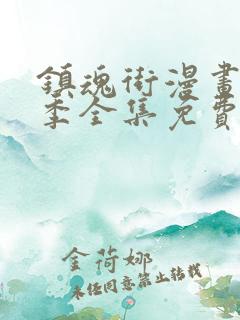 鎮魂街漫畫
季全集免費
金荷娜
未经同意禁止转载